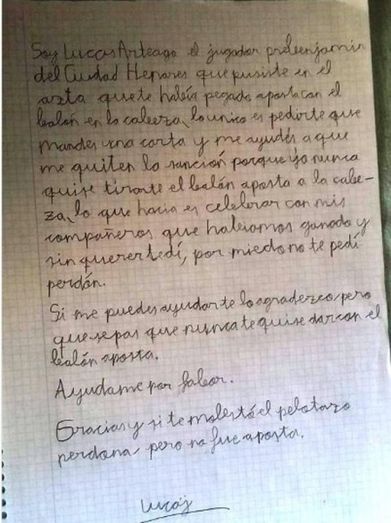 Soy Lucas Arteaga el jugador prebenjamin
del Ciudad Henares que pusiste en el
azta que te habia pegado aposta con el
balón en la cabeza, lo unico es pedirte que
mandes una carta y me ayudes a que
me quiten la sancion porque yo nunca
quise tirarte el balón aposta a la cabe-
za, lo que hacia es celebrar con mis
compañeros que habiamos ganado y
sin querer te dí, por miedo no te pedí
perdón.
Si me puedes ayudar te lo agradezco, pero
que sepas que nunca te quise dar con el
balón aposta.
Ayudame por fabor.
Gracias y si te molestó el pelotazo
perdona, pero no fue aposta.
Lucas